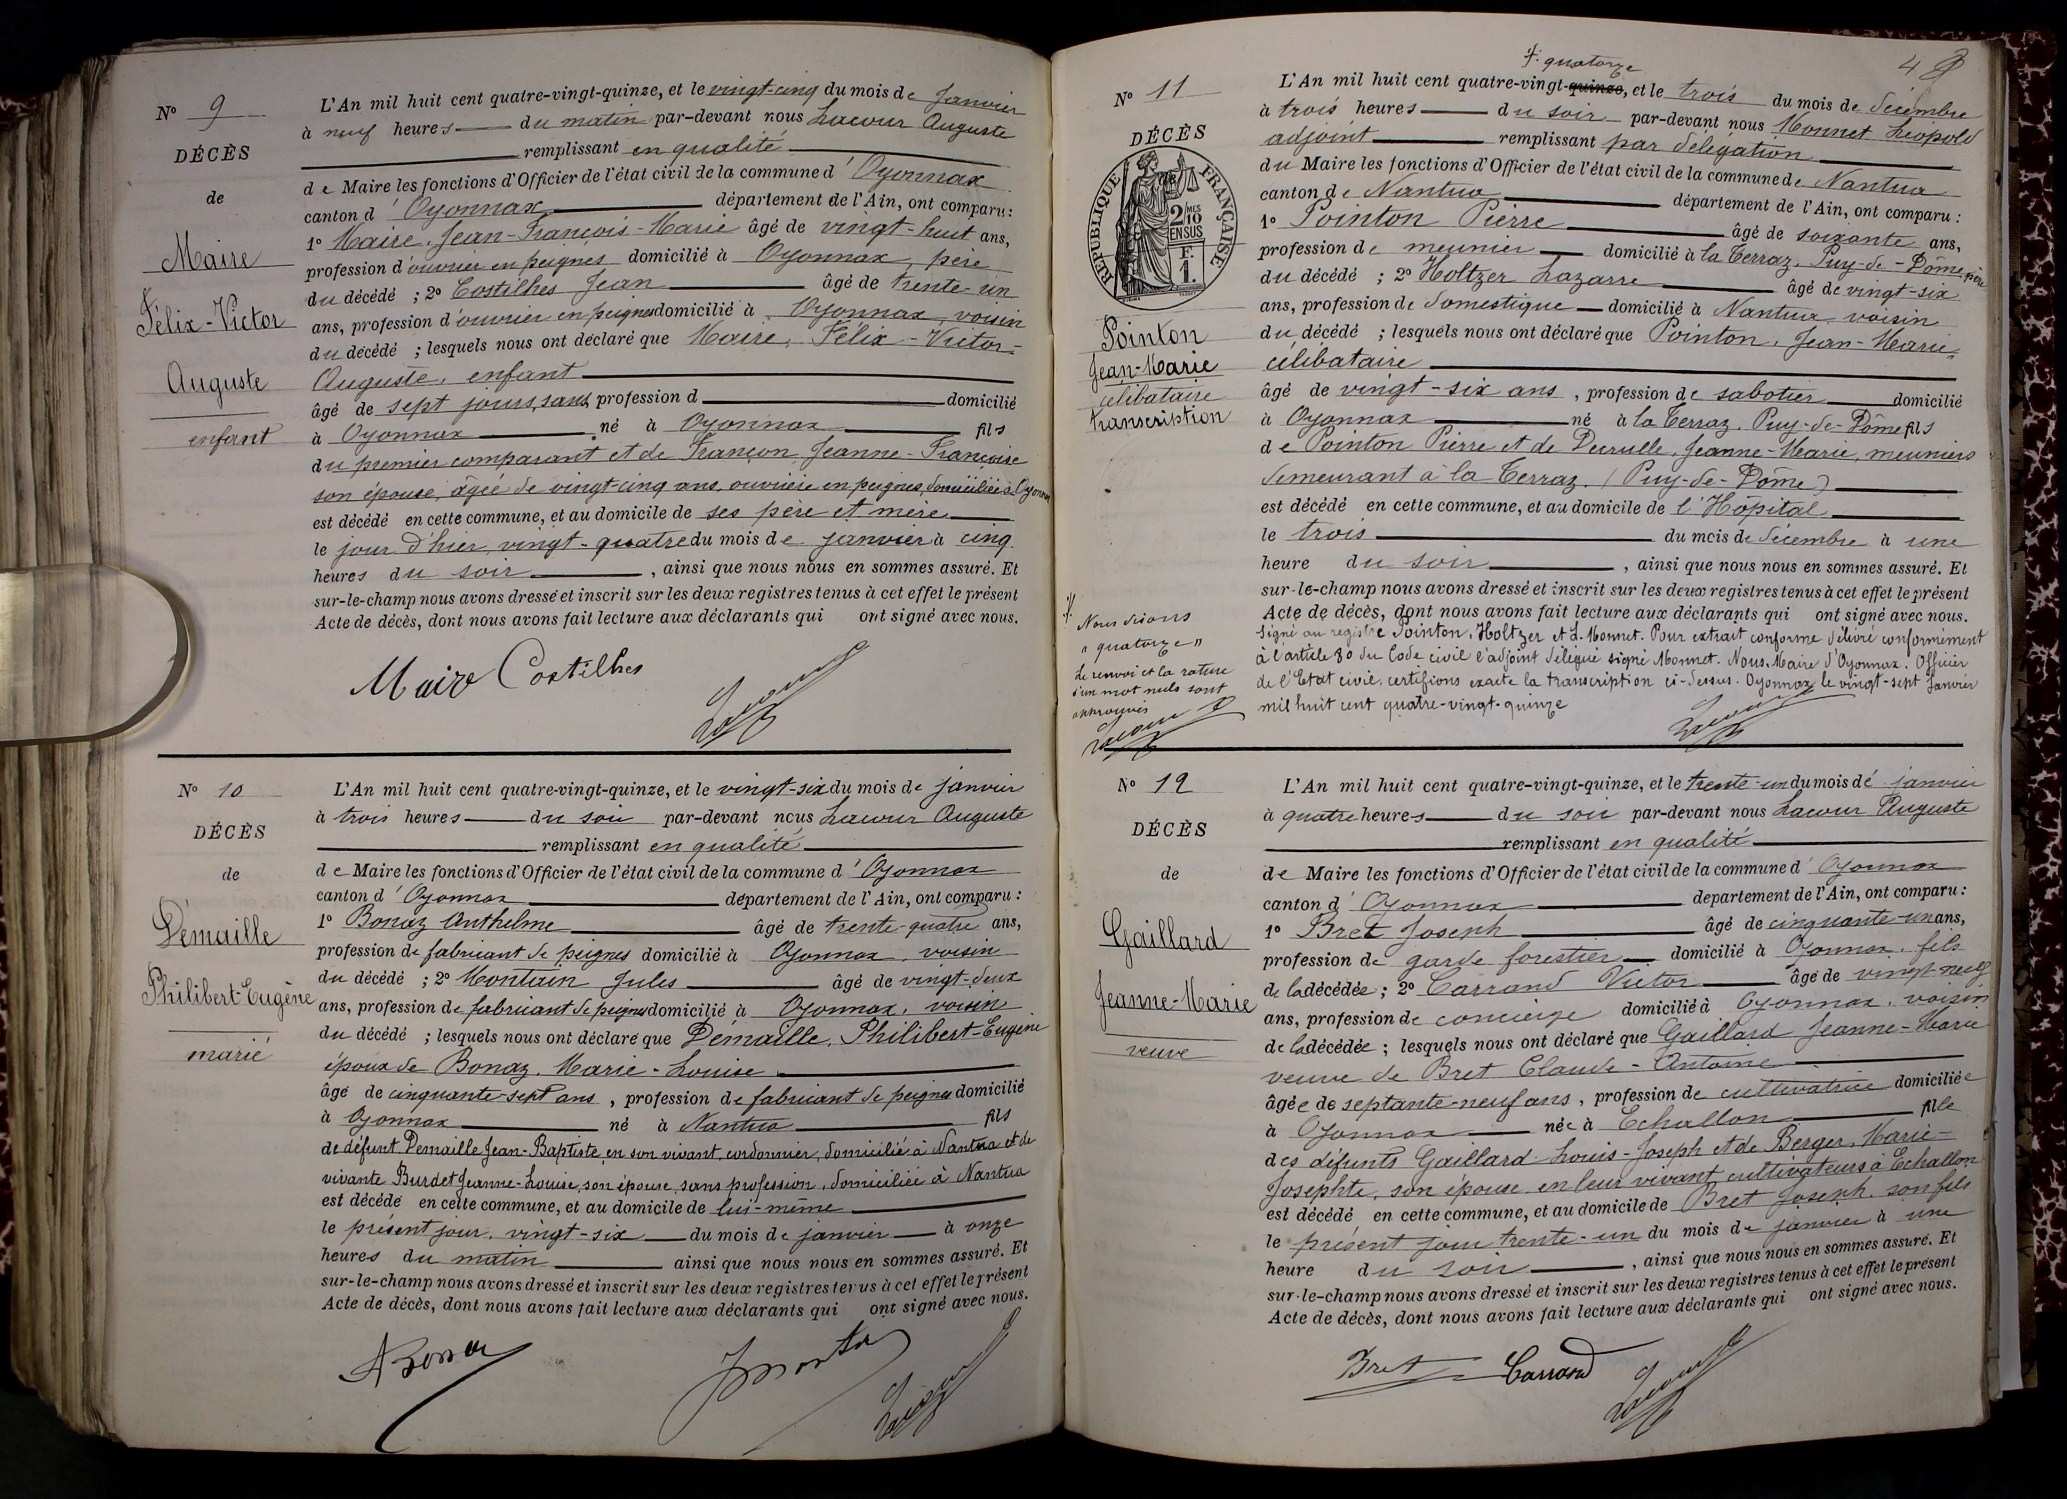 Nº 9
DÉCÈS
de
Maire
Félix-Victor
Auguste
enfant
L'An mil huit cent quatre-vingt-quinze, et le vingt-cinq du mois de Janvier
à neuf heures du matin par-devant nous Lacour Auguste
remplissant en qualité
de Maire les fonctions d'Officier de l'état civil de la commune d'Oyonnax
canton d'Oyonnax département de l'Ain, ont comparu :
1º Maire, Jean-François-Marie âgé de vingt-huit ans,
profession d'ouvrier en peignes domicilié à Oyonnax, père
du décédé ; 2º Costilhes Jean âgé de trente-un
ans, profession d'ouvrier en peignes domicilié à Oyonnax, voisin
du décédé ; lesquels nous ont déclaré que Maire, Félix-Victor-
Auguste, enfant
âgé de sept jours, sans profession d domicilié
à Oyonnax né à Oyonnax fils
du premier comparant et de Françon, Jeanne-Françoise
son épouse, âgée de vingt cinq ans, ouvrière en peignes, domiciliée à Oyonnax
est décédé en cette commune, et au domicile de ses père et mère
le jour d'hier, vingt-quatre du mois de janvier à cinq
heures du soir, ainsi que nous nous en sommes assuré. Et
sur-le-champ nous avons dressé et inscrit sur les deux registres tenus à cet effet le présent
Acte de décès, dont nous avons fait lecture aux déclarants qui ont signé avec nous.
Maire Costilhes
Lacour
Nº 10
DÉCÈS
de
Démaille
Philibert-Eugène
marié
L'An mil huit cent quatre-vingt-quinze, et le vingt-six du mois de janvier
à trois heures du soir par-devant nous Lacour Auguste
remplissant en qualité
de Maire les fonctions d'Officier de l'état civil de la commune d'Oyonnax
canton d'Oyonnax département de l'Ain, ont comparu :
1º Bonaz Anthelme âgé de trente-quatre ans,
profession de fabricant de peignes domicilié à Oyonnax, voisin
du décédé ; 2º Montain Jules âgé de vingt-deux
ans, profession de fabricant de peignes domicilié à Oyonnax, voisin
du décédé ; lesquels nous ont déclaré que Démaille, Philibert-Eugène
époux de Bonaz, Marie-Louise
âgé de cinquante-sept ans, profession de fabricant de peignes domicilié
à Oyonnax né à Nantua fils
de défunt Demaille Jean-Baptiste, en son vivant, cordonnier, domicilié à Nantua et de
vivante Burdet Jeanne-Louise, son épouse, sans profession, domiciliée à Nantua
est décédé en cette commune, et au domicile de lui-même
le présent jour, vingt-six du mois de janvier à onze
heures du matin ainsi que nous nous en sommes assuré. Et
sur-le-champ nous avons dressé et inscrit sur les deux registres tenus à cet effet le présent
Acte de décès, dont nous avons fait lecture aux déclarants qui ont signé avec nous.
ABonaz
JMontain
Lacour
4
Nº 11
DÉCÈS
de
RÉPUBLIQUE FRANÇAISE
2/10 MES
EN SUS
F.
1.
Pointon
Jean-Marie
célibataire
transcription
≠ quatorze
L'An mil huit cent quatre-vingt-quinze, et le trois du mois de décembre
à trois heures du soir par-devant nous Monnet Léopold
adjoint remplissant par délégation
du Maire les fonctions d'Officier de l'état civil de la commune de Nantua
canton de Nantua département de l'Ain, ont comparu :
1º Pointon Pierre âgé de soixante ans,
profession de meunier domicilié à la Terraz, Puy-de-Dôme, père
du décédé ; 2º Holtzer Lazarre âgé de vingt-six
ans, profession de domestique domicilié à Nantua voisin
du décédé ; lesquels nous ont déclaré que Pointon, Jean-Marie,
célibataire
âgé de vingt-six ans, profession de sabotier domicilié
à Oyonnax né à la Terraz, Puy-de-Dôme fils
de Pointon Pierre et de Decrulle, Jeanne-Marie, meuniers
demeurant à la Terraz, (Puy-de-Dôme)
est décédé en cette commune, et au domicile de l'Hôpital
le trois du mois de décembre à une
heure du soir, ainsi que nous nous en sommes assuré. Et
sur-le-champ nous avons dressé et inscrit sur les deux registres tenus à cet effet le présent
Acte de décès, dont nous avons fait lecture aux déclarants qui ont signé avec nous.
Signé au registre Pointon, Holtzer et L. Monnet. Pour extrait conforme délivré conformément
à l'article 80 du Code civil l'adjoint délégué signé Monnet. Nous, Maire d'Oyonnax, Officier
de l'Etat civil, certifions exacte la transcription ci-dessus. Oyonnax, le vingt-sept Janvier
mil huit cent quatre-vingt-quinze
Lacour
≠
Nous disons
"quatorze"
Le renvoi et la rature
d'un mot nuls sont
approuvés
Lacour
Nº 12
DÉCÈS
de
Gaillard
Jeanne-Marie
veuve
L'An mil huit cent quatre-vingt-quinze, et le trente-un du mois de janvier
à quatre heures du soir par-devant nous Lacour Auguste
remplissant en qualité
de Maire les fonctions d'Officier de l'état civil de la commune d'Oyonnax
canton d'Oyonnax département de l'Ain, ont comparu :
1º Bret Joseph âgé de cinquante-un ans,
profession de garde forestier domicilié à Oyonnax, fils
de la décédée ; 2º Carrand Victor âgé de vingt-neuf
ans, profession de concierge domicilié à Oyonnax, voisin
de la décédée ; lesquels nous ont déclaré que Gaillard Jeanne-Marie
veuve de Bret Claude-Antoine
âgée de septante-neuf ans, profession de cultivatrice domiciliée
à Oyonnax née à Echallon fille
des défunts Gaillard Louis-Joseph et de Berger, Marie-
Josephte, son épouse, en leur vivant cultivateurs à Echallon
est décédé en cette commune, et au domicile de Bret Joseph, son fils
le présent jour trente-un du mois de janvier à une
heure du soir, ainsi que nous nous en sommes assuré. Et
sur-le-champ nous avons dressé et inscrit sur les deux registres tenus à cet effet le présent
Acte de décès, dont nous avons fait lecture aux déclarants qui ont signé avec nous.
Bret Carrand
Lacour